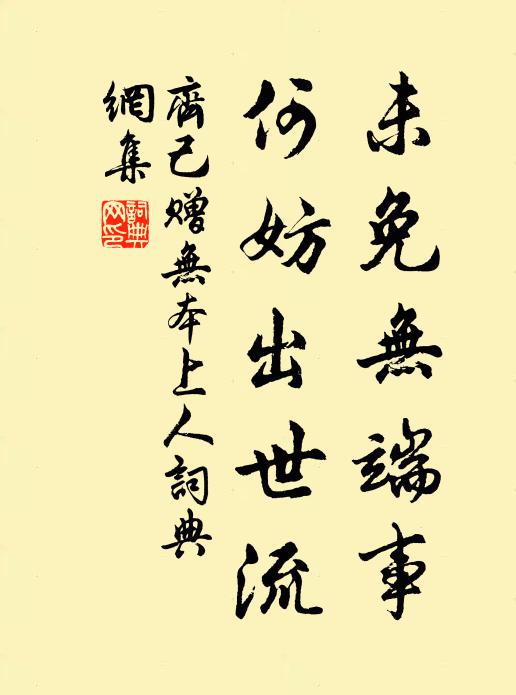 未免無端事
何妨出世流
齊己贈無本上人詞典
網集
詞典
网印